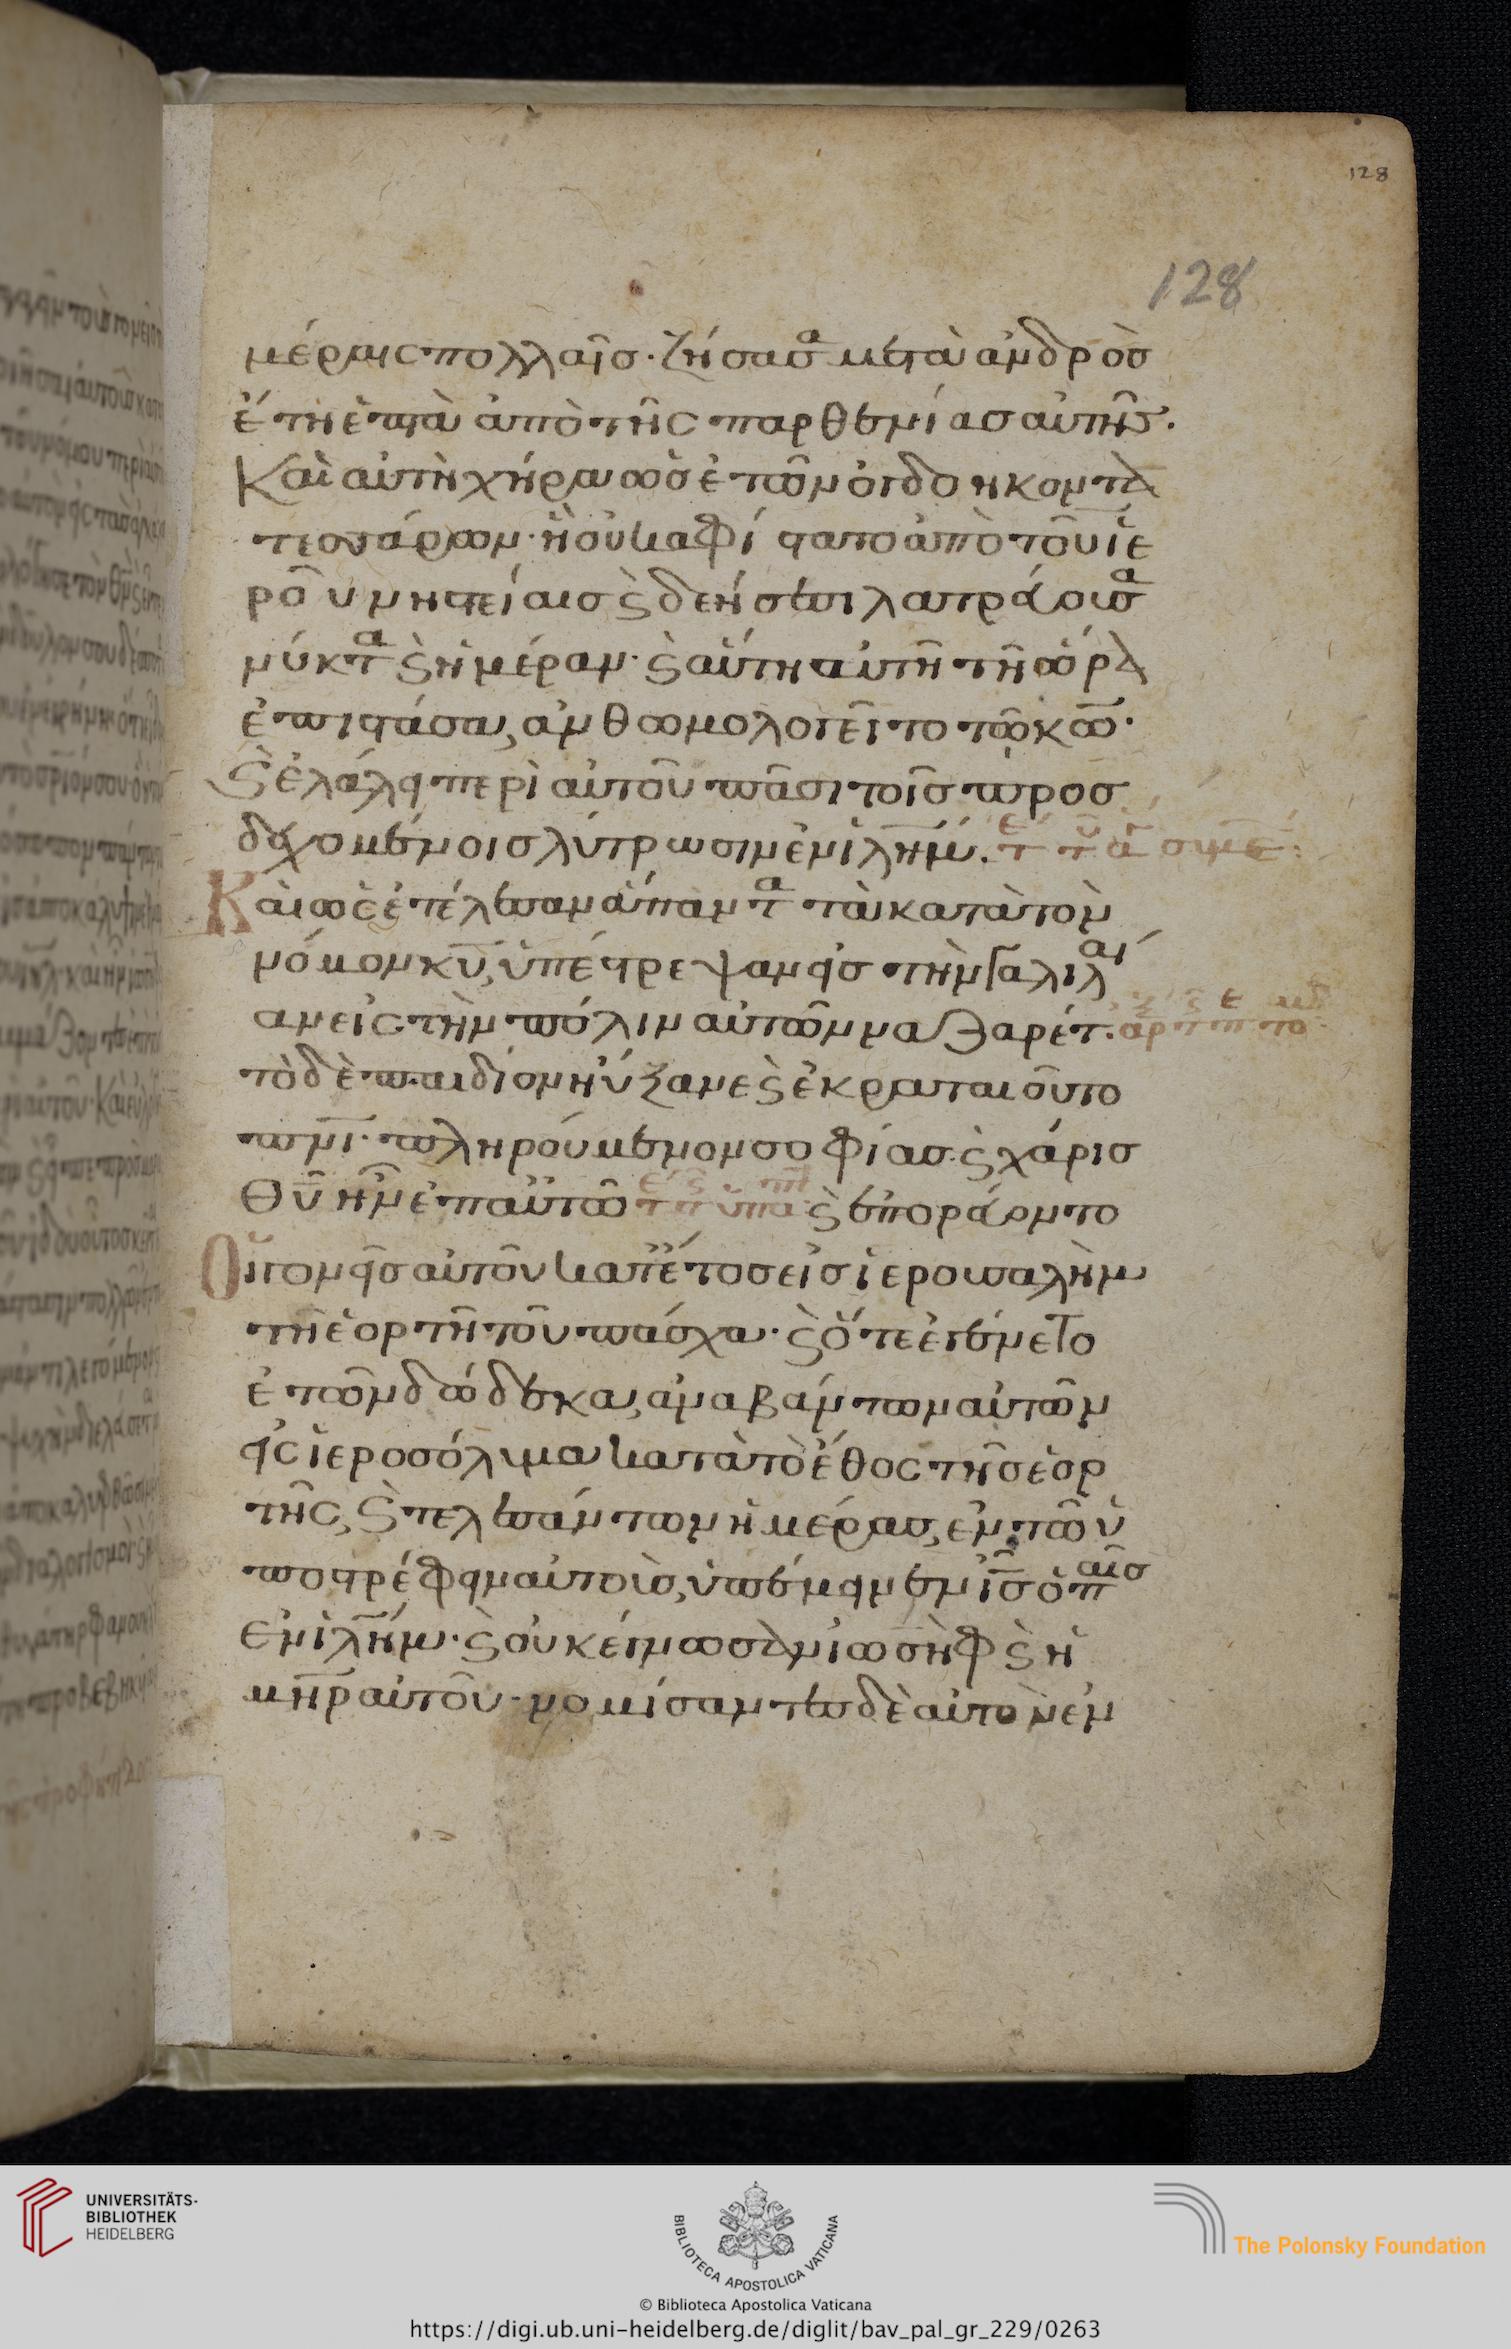 128
128
μέραις πολλαῖσ· ζήσασα μετὰ ἀνδρὸσ
ἔτη ἑπτὰ ἀπὸ τῆς παρθενίασ αὐτῆς.
Καὶ αὐτὴ χήρα ὡσ ἐτῶν ὀγδοηκοντα
τεσσάρων· ἣ οὐκ ἀφίστατο ἀπὸ τοῦ ἱε
ροῦ νηστείαισ ϗ δεήσεσι λατρεύουσα
νύκτα ϗ ἡμέραν· ϗ αὕτη αὐτῆ τῆ ὥρα
ἐπιστάσα, ἀνθωμολογεῖτο τῶ κω·
ϗ ἐλάλει περὶ αὐτοῦ πᾶσι τοῖσ προσ
δεχομένοισ λύτρωσιν ἐν ιλημ.
Καὶ ὡς ἐτέλεσαν ἅπαντα τὰ κατὰ τὸν
νόμον κυ, ὑπέστρεψαν εἰσ τὴν γαλιλαί
αν εἰς τὴν πόλιν αὐτῶν ναζαρέτ.
τὸ δὲ παιδίον ηὔξανε ϗ ἐκραταιοῦτο
πνι· πληρούμενον σοφίασ· ϗ χάρισ
θυ ἦν ἐπ αὐτῶ ϗ ἐπορεύοντο
Οἱ γονεῖσ αὐτοῦ κατ ἔτοσ εἰσ ἱερουσαλὴμ
τῆ ἑορτῆ τοῦ πάσχα· ϗ ὅτε ἐγένετο
ἐτῶν δώδεκα, ἀναβάντων αὐτῶν
εἰς ἱεροσόλυμα κατὰ τὸ ἔθος τῆσ ἑορ
τῆς, ϗ τελεσάντων ἡμέρασ, ἐν τῶ ὑ
ποστρέφειν αὐτοὺσ, ὑπέμεινεν ισ ὁ παῖσ
ἐν ιλημ· ϗ οὐκ εἴνωσαν ἰωσὴφ ϗ ἡ
μηρ αὐτοῦ· νομίσαντεσ δὲ αὐτὸν ἐν
UNIVERSITÄTS-
BIBLIOTHEK
HEIDELBERG
BIBLIOTECA APOSTOLICA VATICANA
The Polonsky Foundation
© Biblioteca Apostolica Vaticana
https://digi.ub.uni-heidelberg.de/diglit/bav_pal_gr_229/0263